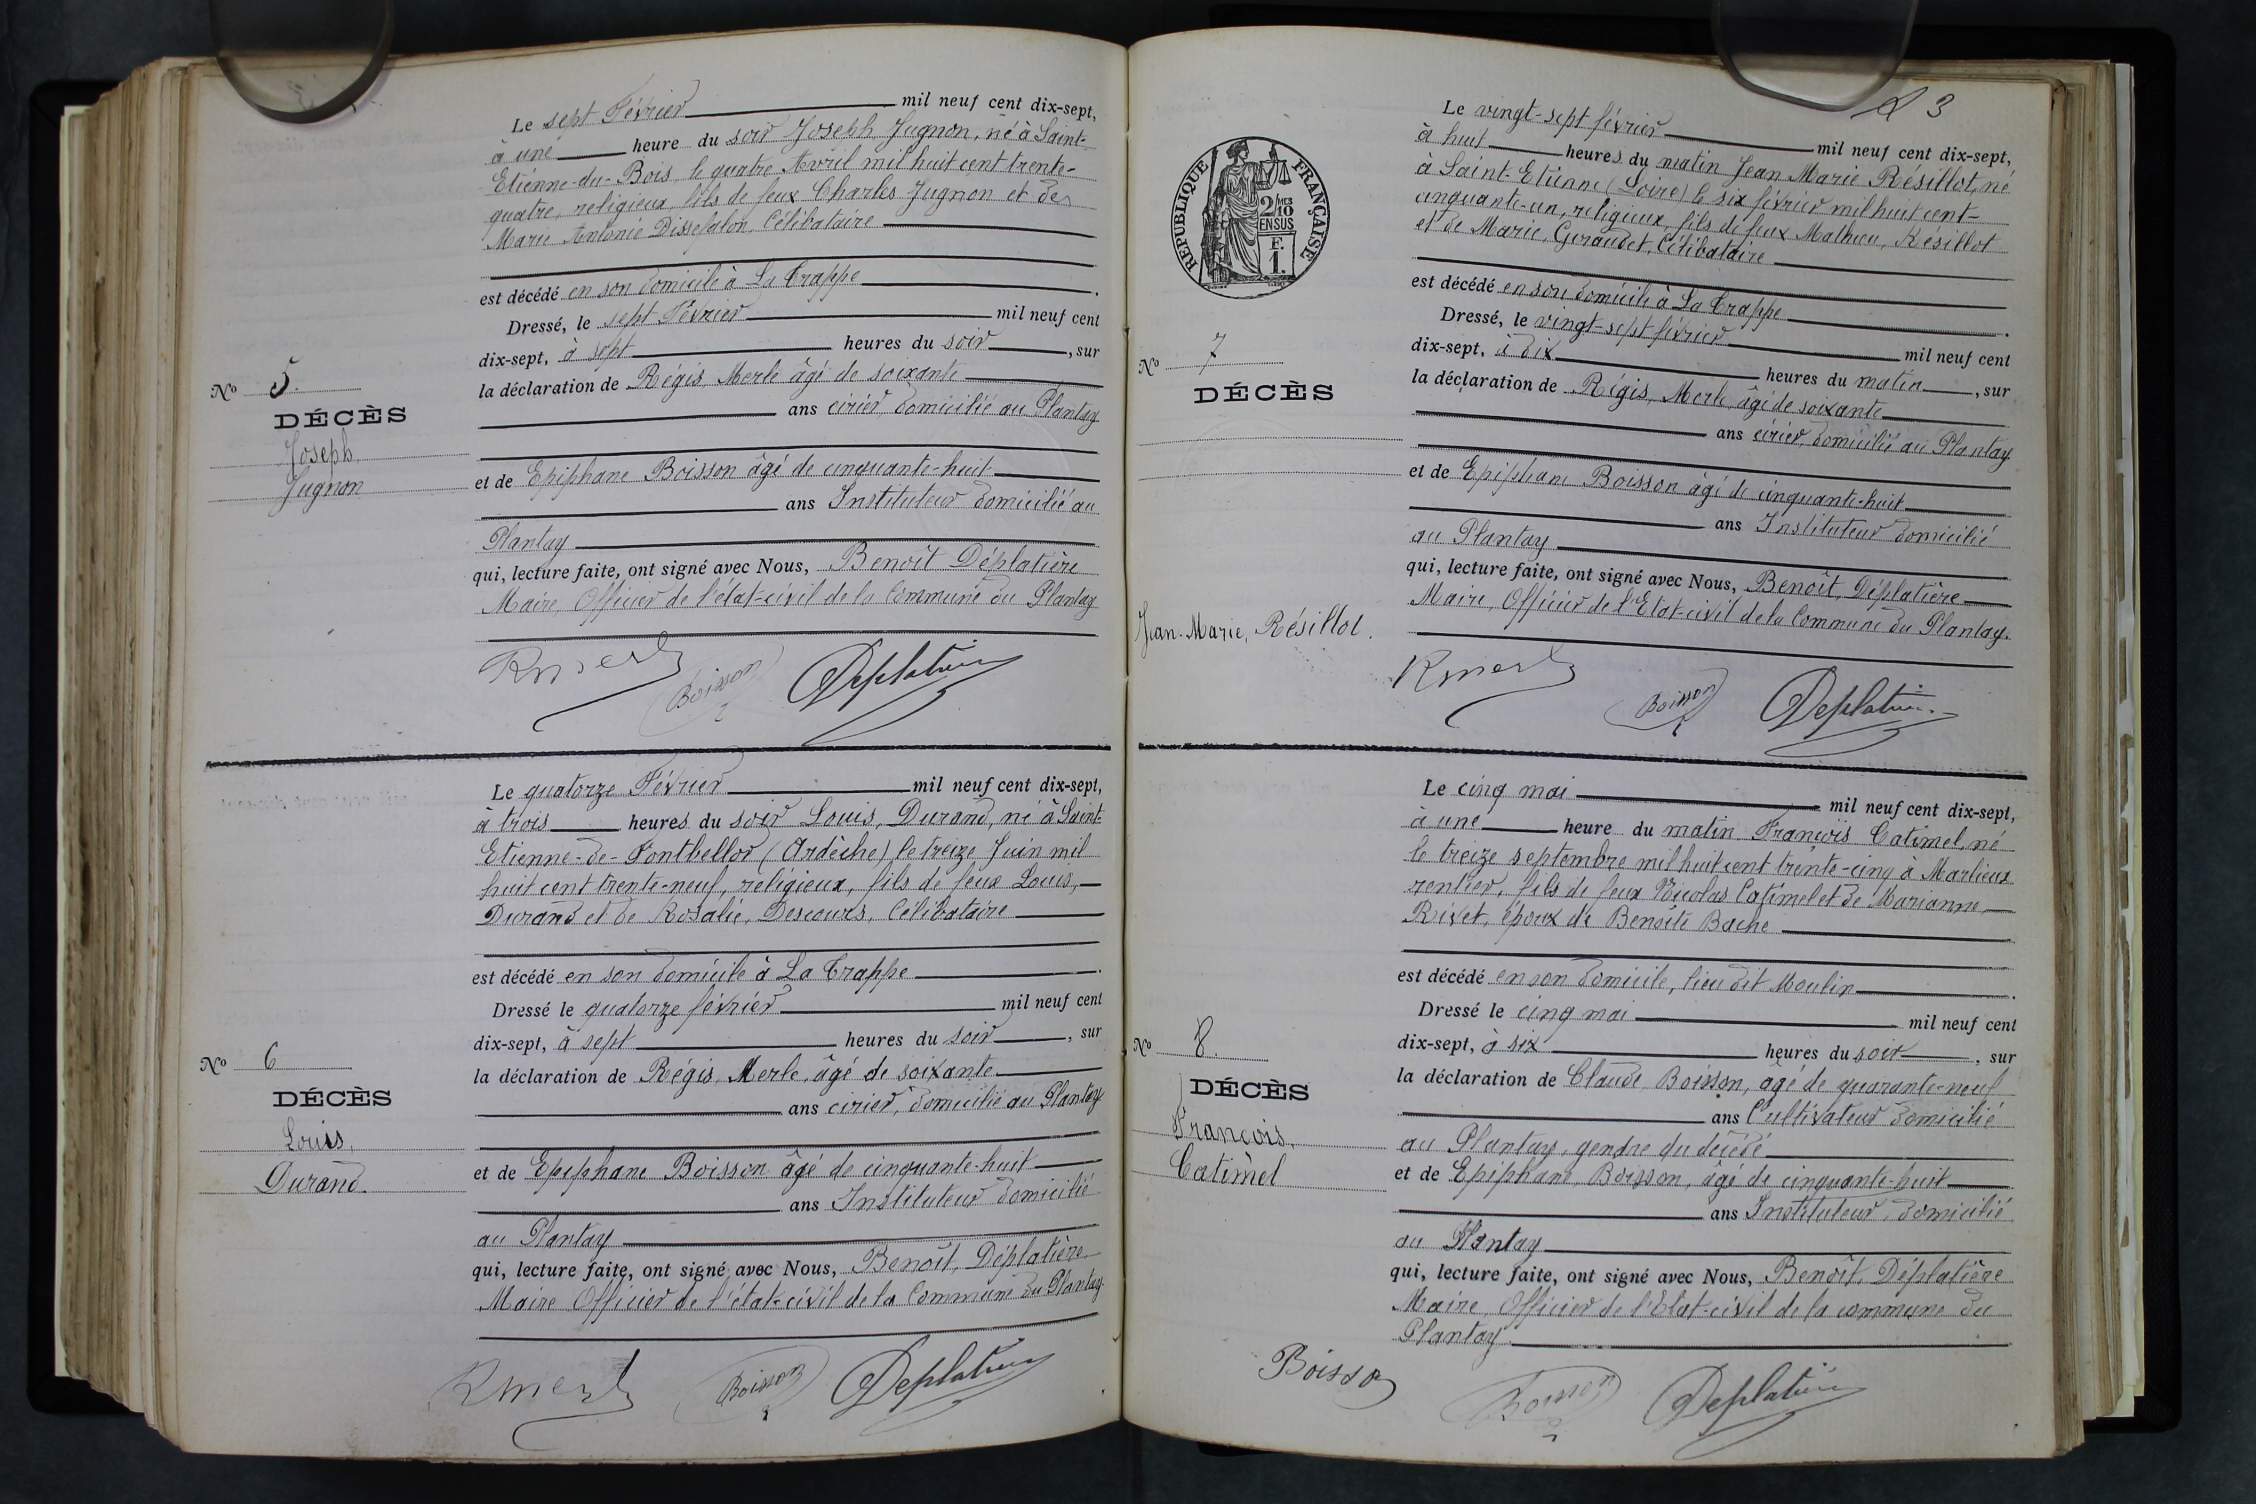 Le sept Février mil neuf cent dix-sept,
à une heure du soir Joseph Jugnon, né à Saint-
Etienne-du-Bois, le quatre Avril mil huit cent trente-
quatre, religieux, fils de feux Charles Jugnon et de
Marie Antonie Dissefalon, Célibataire
est décédé en son domicile à La Trappe
Dressé, le sept Février mil neuf cent
dix-sept, à sept heures du soir, sur
la déclaration de Régis, Merle âgé de soixante
ans cirier, domicilié au Plantay
et de Epiphane Boisson âgé de cinquante-huit
ans Instituteur domicilié au
Plantay
qui, lecture faite, ont signé avec Nous, Benoît Déplatière
Maire, Officier de l'état-civil de la Commune du Plantay
No 5.
DÉCÈS
Joseph,
Jugnon
RMerle Boisson Deplatière
Le quatorze Février mil neuf cent dix-sept,
à trois heures du soir Louis, Durand, né à Saint-
Etienne-de-Fontbellor (Ardèche) le treize Juin mil
huit cent trente-neuf, religieux, fils de feux Louis,
Durand et de Rosalie, Descours, Célibataire
est décédé en son domicile à La Trappe
Dressé le quatorze février mil neuf cent
dix-sept, à sept heures du soir, sur
la déclaration de Régis, Merle, âgé de soixante
ans cirier, domicilié au Plantay
et de Epiphane Boisson âgé de cinquante-huit
ans Instituteur domicilié
au Plantay
qui, lecture faite, ont signé avec Nous, Benoît, Déplatière
Maire Officier de l'état-civil de la Commune du Plantay.
No 6
DÉCÈS
Louis,
Durand.
RMerle Boisson Deplatière
3
RÉPUBLIQUE FRANÇAISE
2/10
EN SUS
F.
1.
Le vingt-sept février mil neuf cent dix-sept,
à huit heures du matin Jean Marie Résillot, né
à Saint-Etienne (Loire) le six février mil huit cent-
cinquante-un, religieux, fils de feux Mathieu, Résillot
et de Marie, Geraudet, Célibataire
est décédé en son domicile à La Trappe
Dressé, le vingt-sept février mil neuf cent
dix-sept, à dix heures du matin, sur
la déclaration de Régis, Merle, âgé de soixante
ans cirier, domicilié au Plantay
et de Epiphane Boisson âgé de cinquante-huit
ans Instituteur domicilié
au Plantay
qui, lecture faite, ont signé avec Nous, Benoît, Déplatière
Maire, Officier de l'Etat-civil de la Commune du Plantay.
No 7
DÉCÈS
Jean-Marie, Résillot.
RMerle Boisson Deplatière
Le cinq mai mil neuf cent dix-sept,
à une heure du matin François Catimel, né
le treize septembre mil huit cent trente-cinq à Marlieux
rentier, fils de feux Nicolas Catimel et de Marianne,
Rivet, époux de Benoîte Bache
est décédé en son domicile, lieu dit Moulin
Dressé le cinq mai mil neuf cent
dix-sept, à six heures du soir, sur
la déclaration de Claude Boisson, âgé de quarante-neuf
ans Cultivateur domicilié
au Plantay, gendre du décédé
et de Epiphane, Boisson, âgé de cinquante-huit
ans Instituteur, domicilié
au Plantay
qui, lecture faite, ont signé avec Nous, Benoît, Déplatière
Maire, Officier de l'Etat-civil de la commune du
Plantay.
No 8.
DÉCÈS
François,
Catimel
Boisson Boisson Deplatière